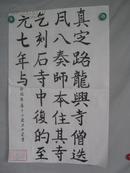 真定路龍興寺僧迭
凡八奏師本住其寺
乞刻石寺中復的至
元七年与